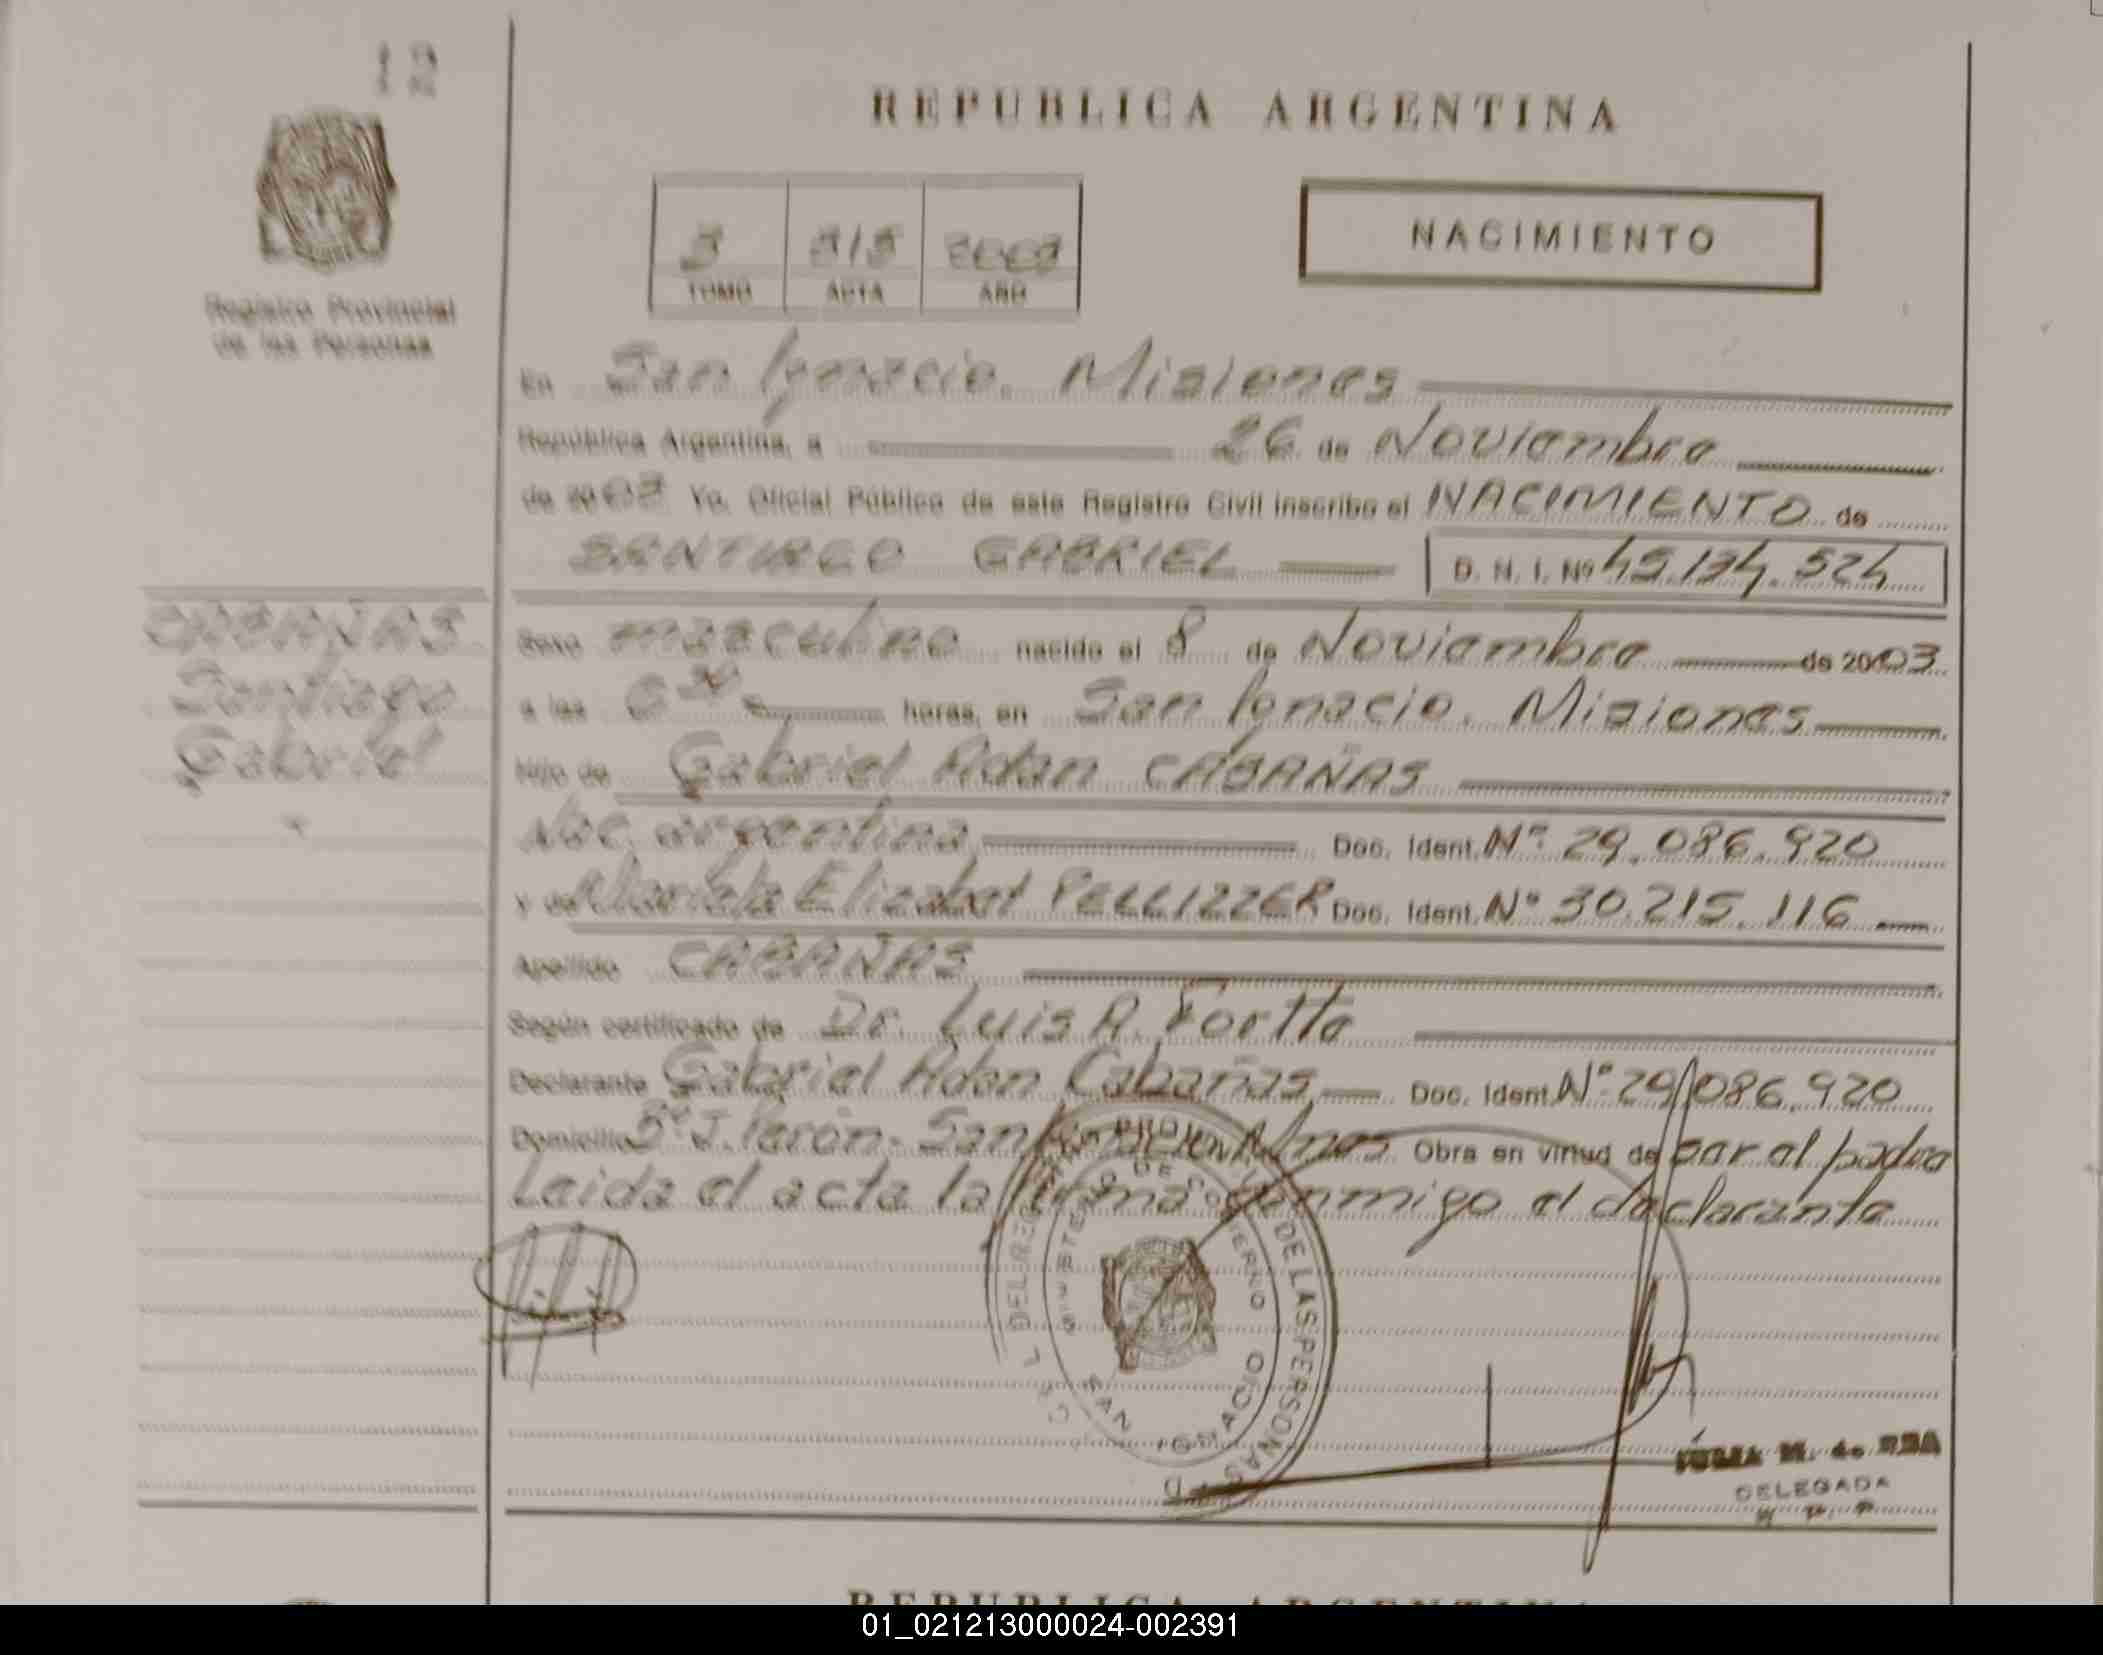 12
REPUBLICA ARGENTINA
Registro Provincial
de las Personas
3 515 2003
TOMO ACTA AÑO
NACIMIENTO
En San Ignacio. Misiones
República Argentina, a 26 de Noviembre
de 2003 Yo, Oficial Público de este Registro Civil inscribo el NACIMIENTO de
SANTIAGO GABRIEL D. N. I. Nº 45.134.524
CABAÑAS
Santiago
Gabriel
Sexo masculino nacido el 8 de Noviembre de 2003
a las 6 30 horas, en San Ignacio. Misiones
Hijo de Gabriel Adan CABAÑAS
Nac. argentina Doc. Ident. Nº 29.086.920
y de Elizabet PELLIZZER Doc. Ident. Nº 30.215.116
Apellido CABAÑAS
Según certificado de Dr. Luis A. Fortte
Declarante Gabriel Adan Cabañas Doc. Ident. Nº 29.086.920
Domicilio J. Perón. San Ignacio Mnes Obra en virtud de ser el padre
Leida el acta la firma conmigo el declarante
DE LAS PERSONAS
SAN IGNACIO
DELEGADA
REPUBLICA ARGENTINA
01_021213000024-002391